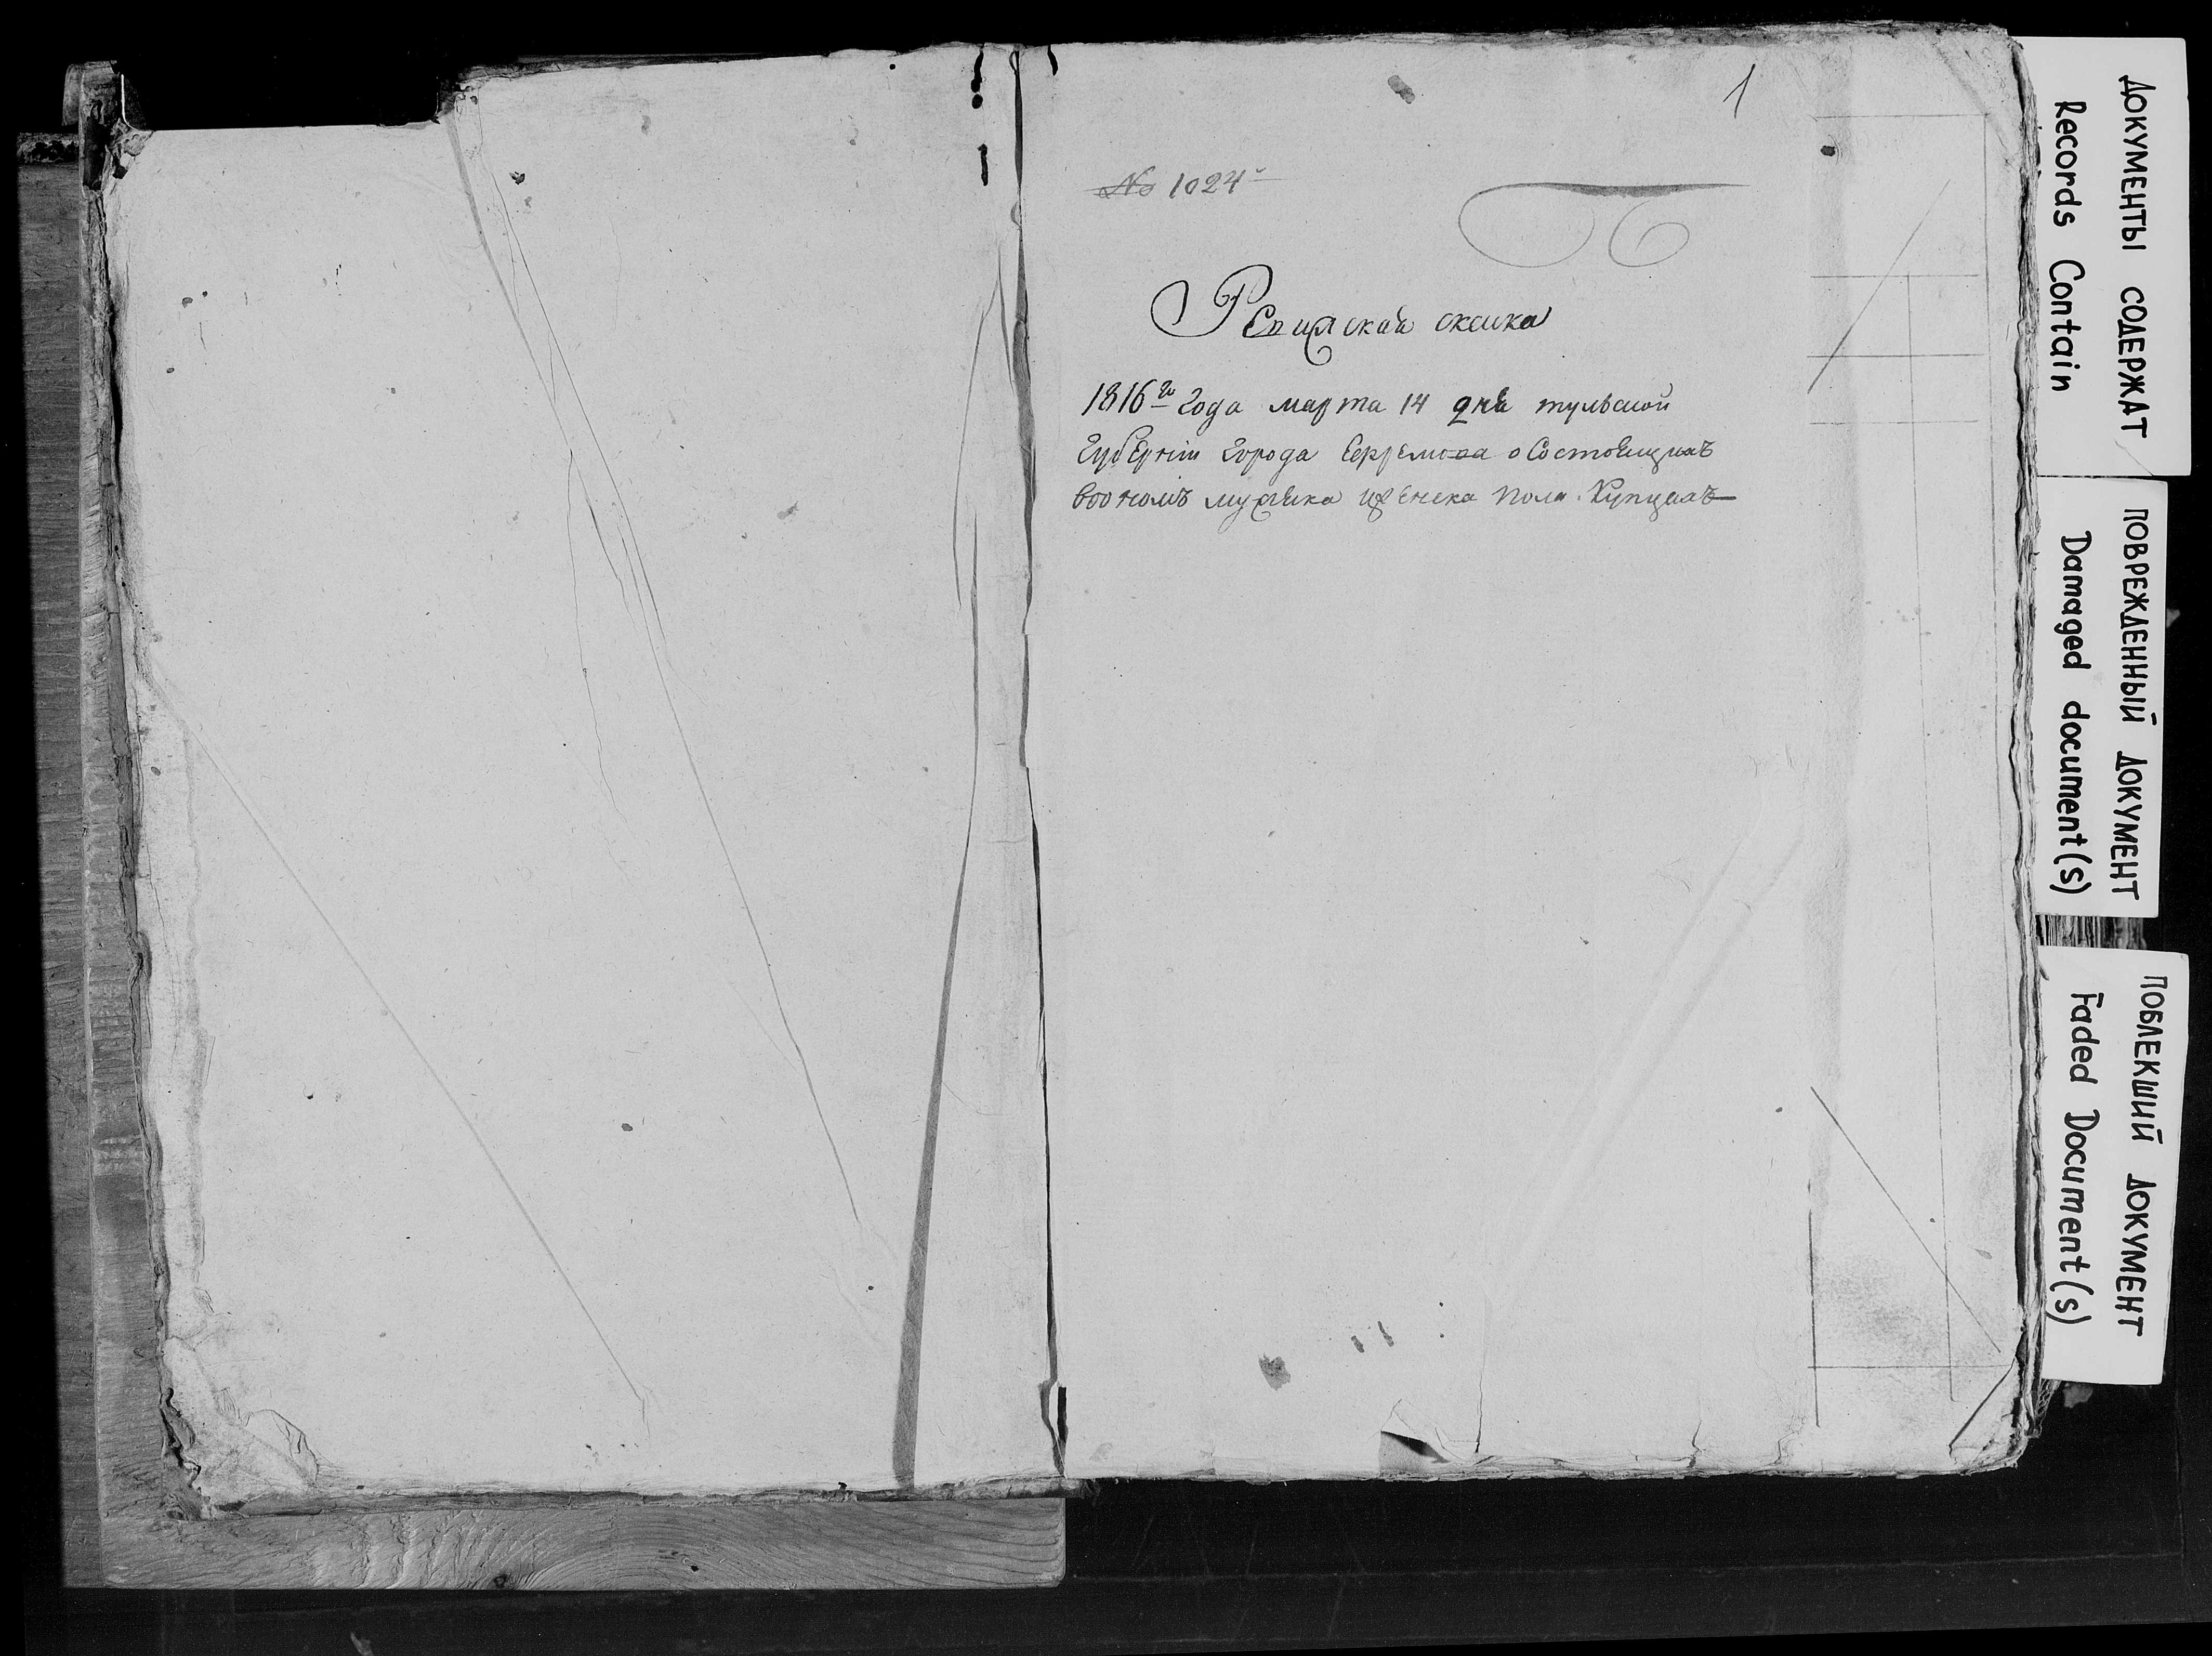 1
№ 1024
Ревижская скаска
1816го года марта 14 дня тульской
Губернiи города Ефремова о Состоящихъ
воономъ мужска иженска пола Купцахъ
ДОКУМЕНТЫ СОДЕРЖАТ
Records Contain
ПОВРЕЖДЕННЫЙ ДОКУМЕНТ
Damaged document(s)
ПОБЛЕКШИЙ ДОКУМЕНТ
Faded Document(s)